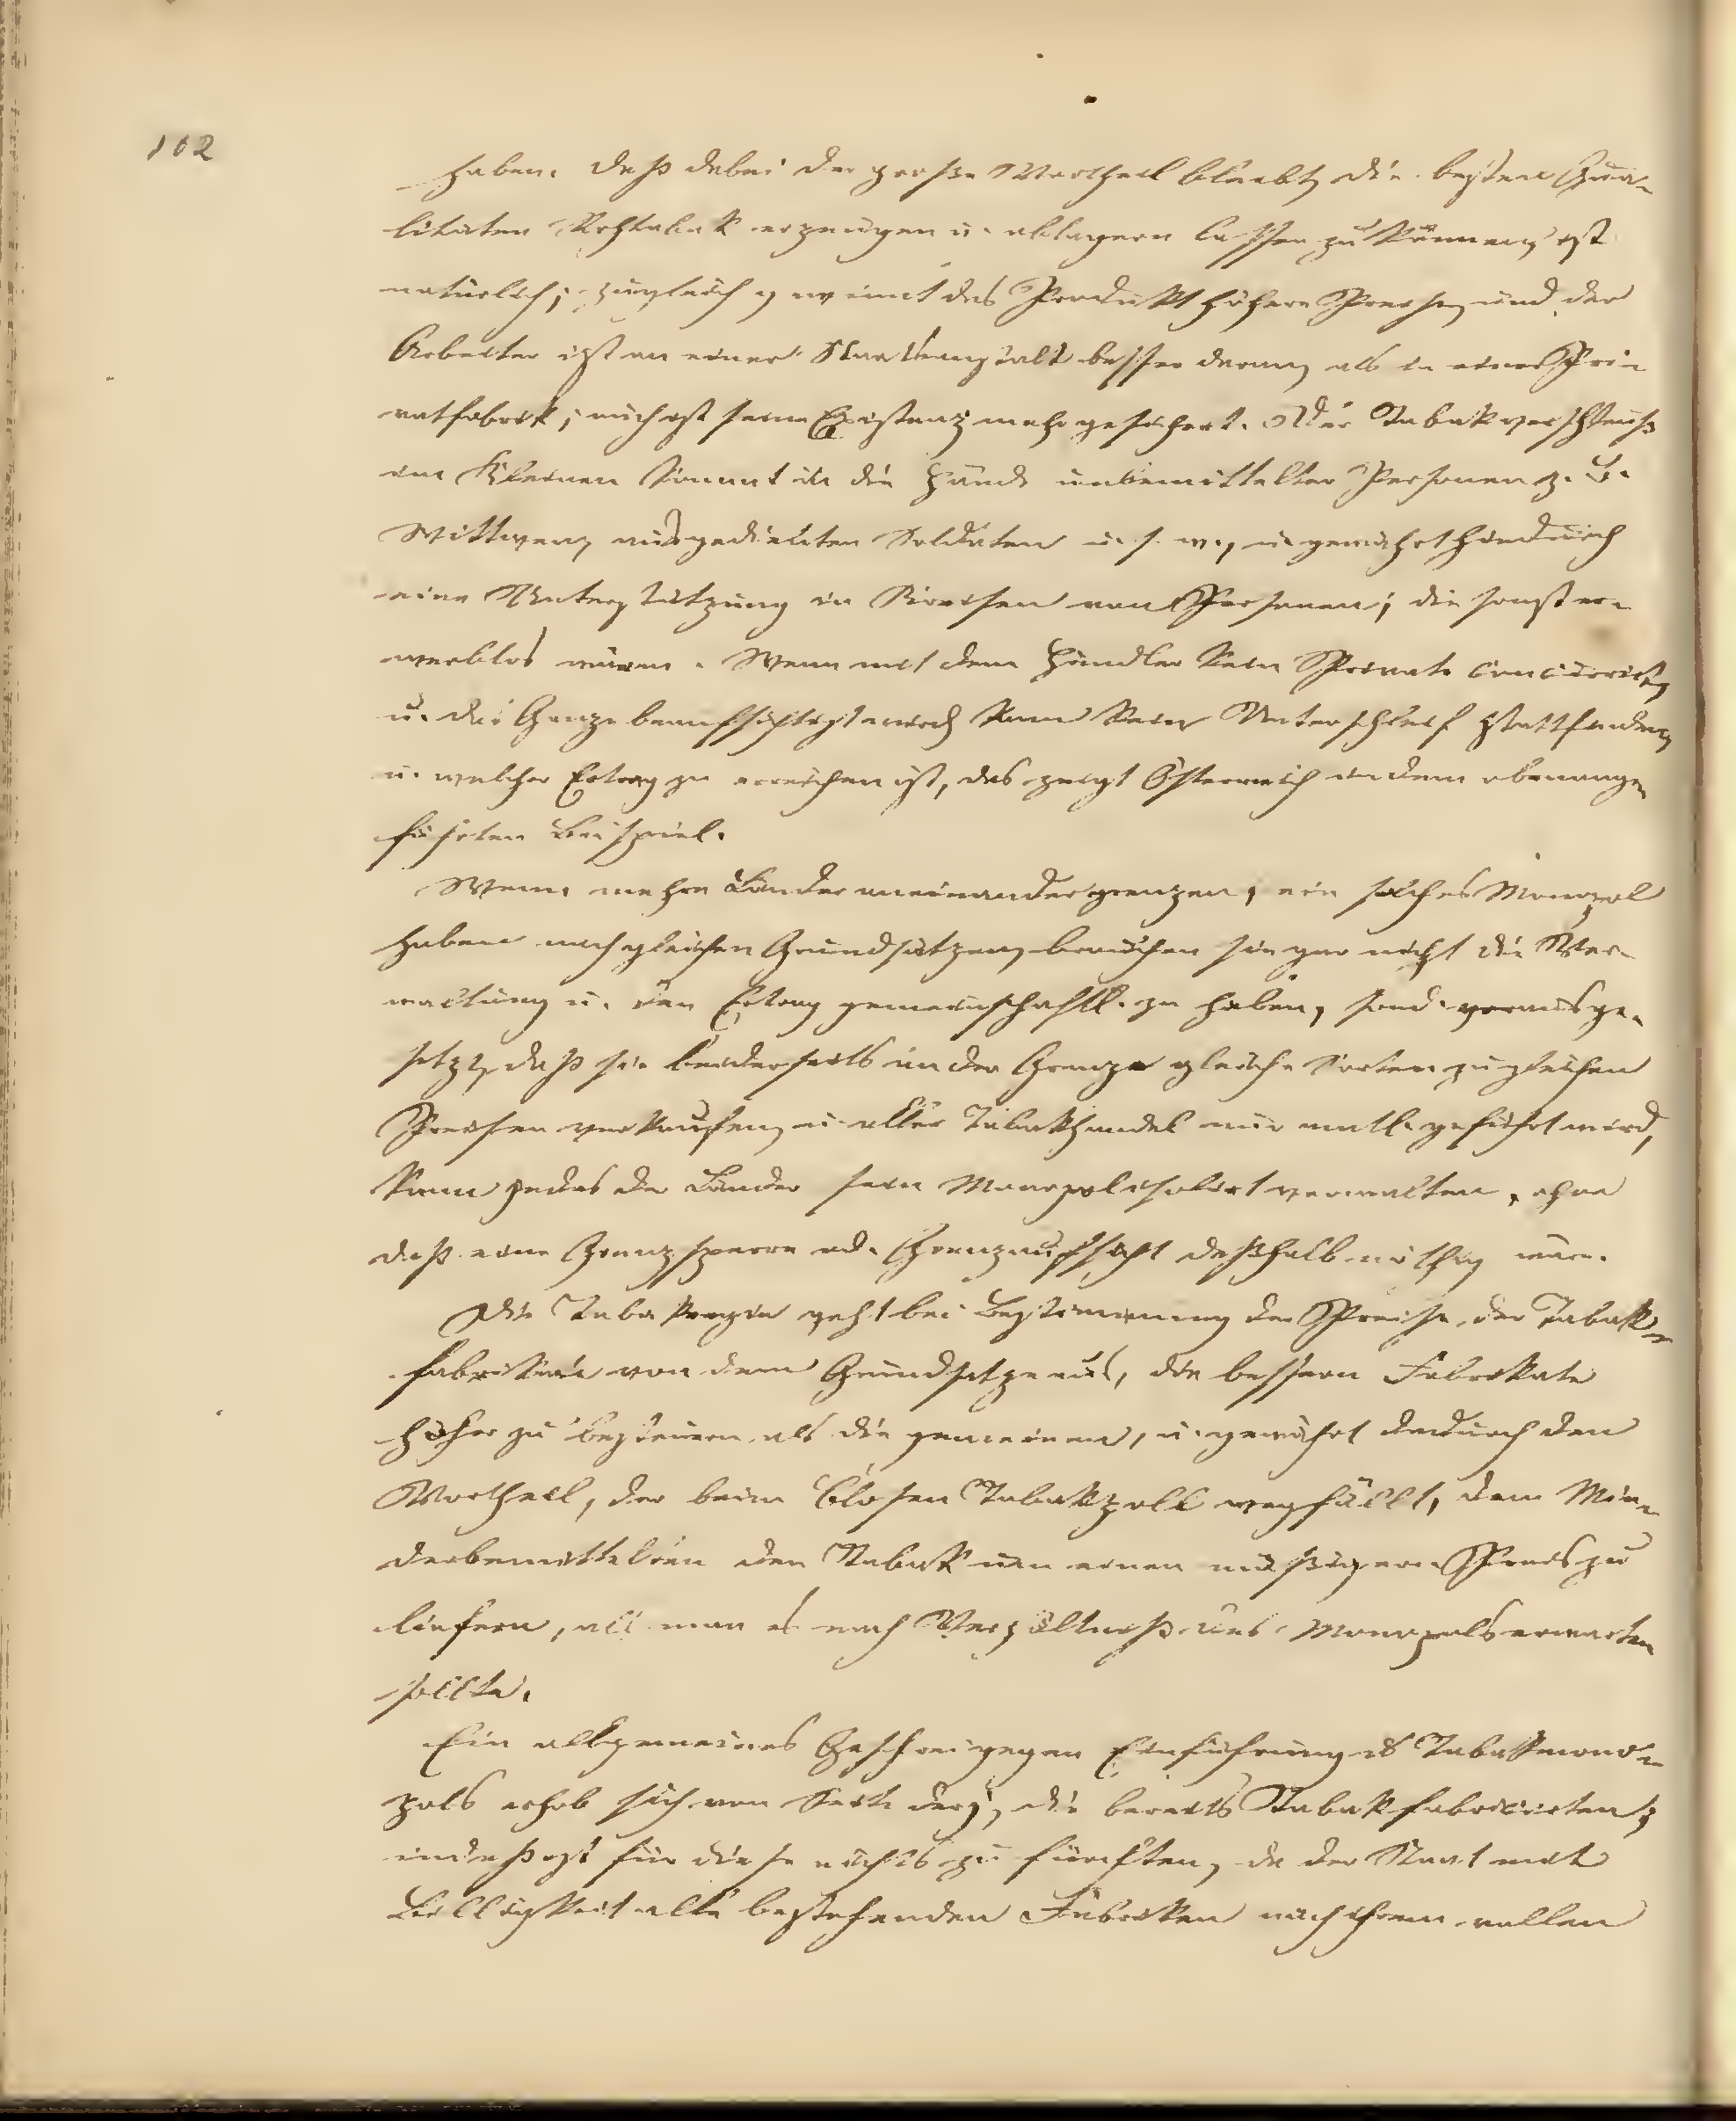 102
haben. Daß dabei der große Vortheil bleibt, die besten Qua-
litäten Rohtabak erzeugen u. ablagern lassen zu können, ist
natürlich; zugleich gewinnt das Produkt höhere Preise, und der
Arbeiter ist an einer Staatsanstalt besser daran, als in einer Pri-
vatfabrik; auch ist seine Existenz mehr gesichert. Der Tabakverschleiß
im Kleinen kommt in die Hände unbemittelter Personen z. B.
Wittwen, ausgedienten Soldaten u. s. w., u. gewährt hindurch
eine Unterstützung in Kreisen von Personen, die sonst er-
werblos wären. Wenn mit dem Händler kein Private concurrirt,
u. das Ganze beaufsichtigt wird, kann kein Unterschleif stattfinden,
u. welcher Ertrag zu erreichen ist, das zeigt Österreich in dem obenange-
führten Beispiel.
Wenn mehre Länder aneinandergrenzen, ein solches Monopol
haben nach gleichen Grundsätzen, brauchen sie gar nicht die Ver-
waltung u. den Ertrag gemeinschaftl. zu haben, sond. vorausge-
setzt, daß sie beiderseits in der Grenze gleiche Sorten zu gleichen
Preisen verkaufen, u. aller Tabakhandel nur amtl. geführt wird,
kann jedes der Länder sein Monopol isolirt verwalten, ohne
daß eine Grenzsperre od. Grenzaufsicht deßhalb nöthig wäre.
Die Tabakregie geht bei Bestimmung der Preise der Tabak-
fabrikate von dem Grundsatze aus, die bessern Fabrikate
höher zu besteuern als die gemeinen, u. gewährt dadurch den
Vortheil, der beim blosen Tabakzoll wegfällt, dem Min-
derbemittelten den Tabak um einen mäßigern Preis zu
liefern, als man es nach Verhältniß des Monopols erwarten
sollte.
Ein allgemeines Geschrei gegen Einführung des Tabakmono-
pols erhob sich von Seite derj., die bereits Tabak fabricirten;
indeß ist für diese nichts zu fürchten, da der Staat mit
Billigkeit alle bestehenden Fabriken nach ihrem vollen